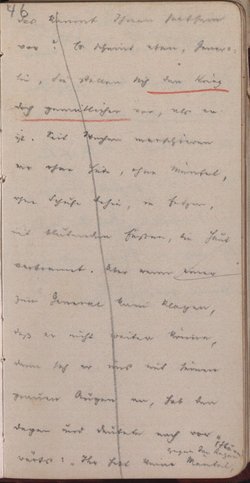 46
das kommt Ihnen seltsam
vor? Es scheint eben, Genera-
lin, Sie stellen sich den Krieg
doch gemütlicher vor, als er
ist. Seit Wochen marschieren
wir ohne Hüte, ohne Mäntel,
ohne Schuhe dahin, in Fetzen,
mit blutenden Füssen, die Haut
verbrannt. Aber wenn einer
zum General kam klagen,
dass er nicht weiter könne,
dann sah er uns mit seinen
Augen an, hob den
Degen und deutete nach vor-
gegen den Regen
wärts: "Ihr habt keine Mäntel